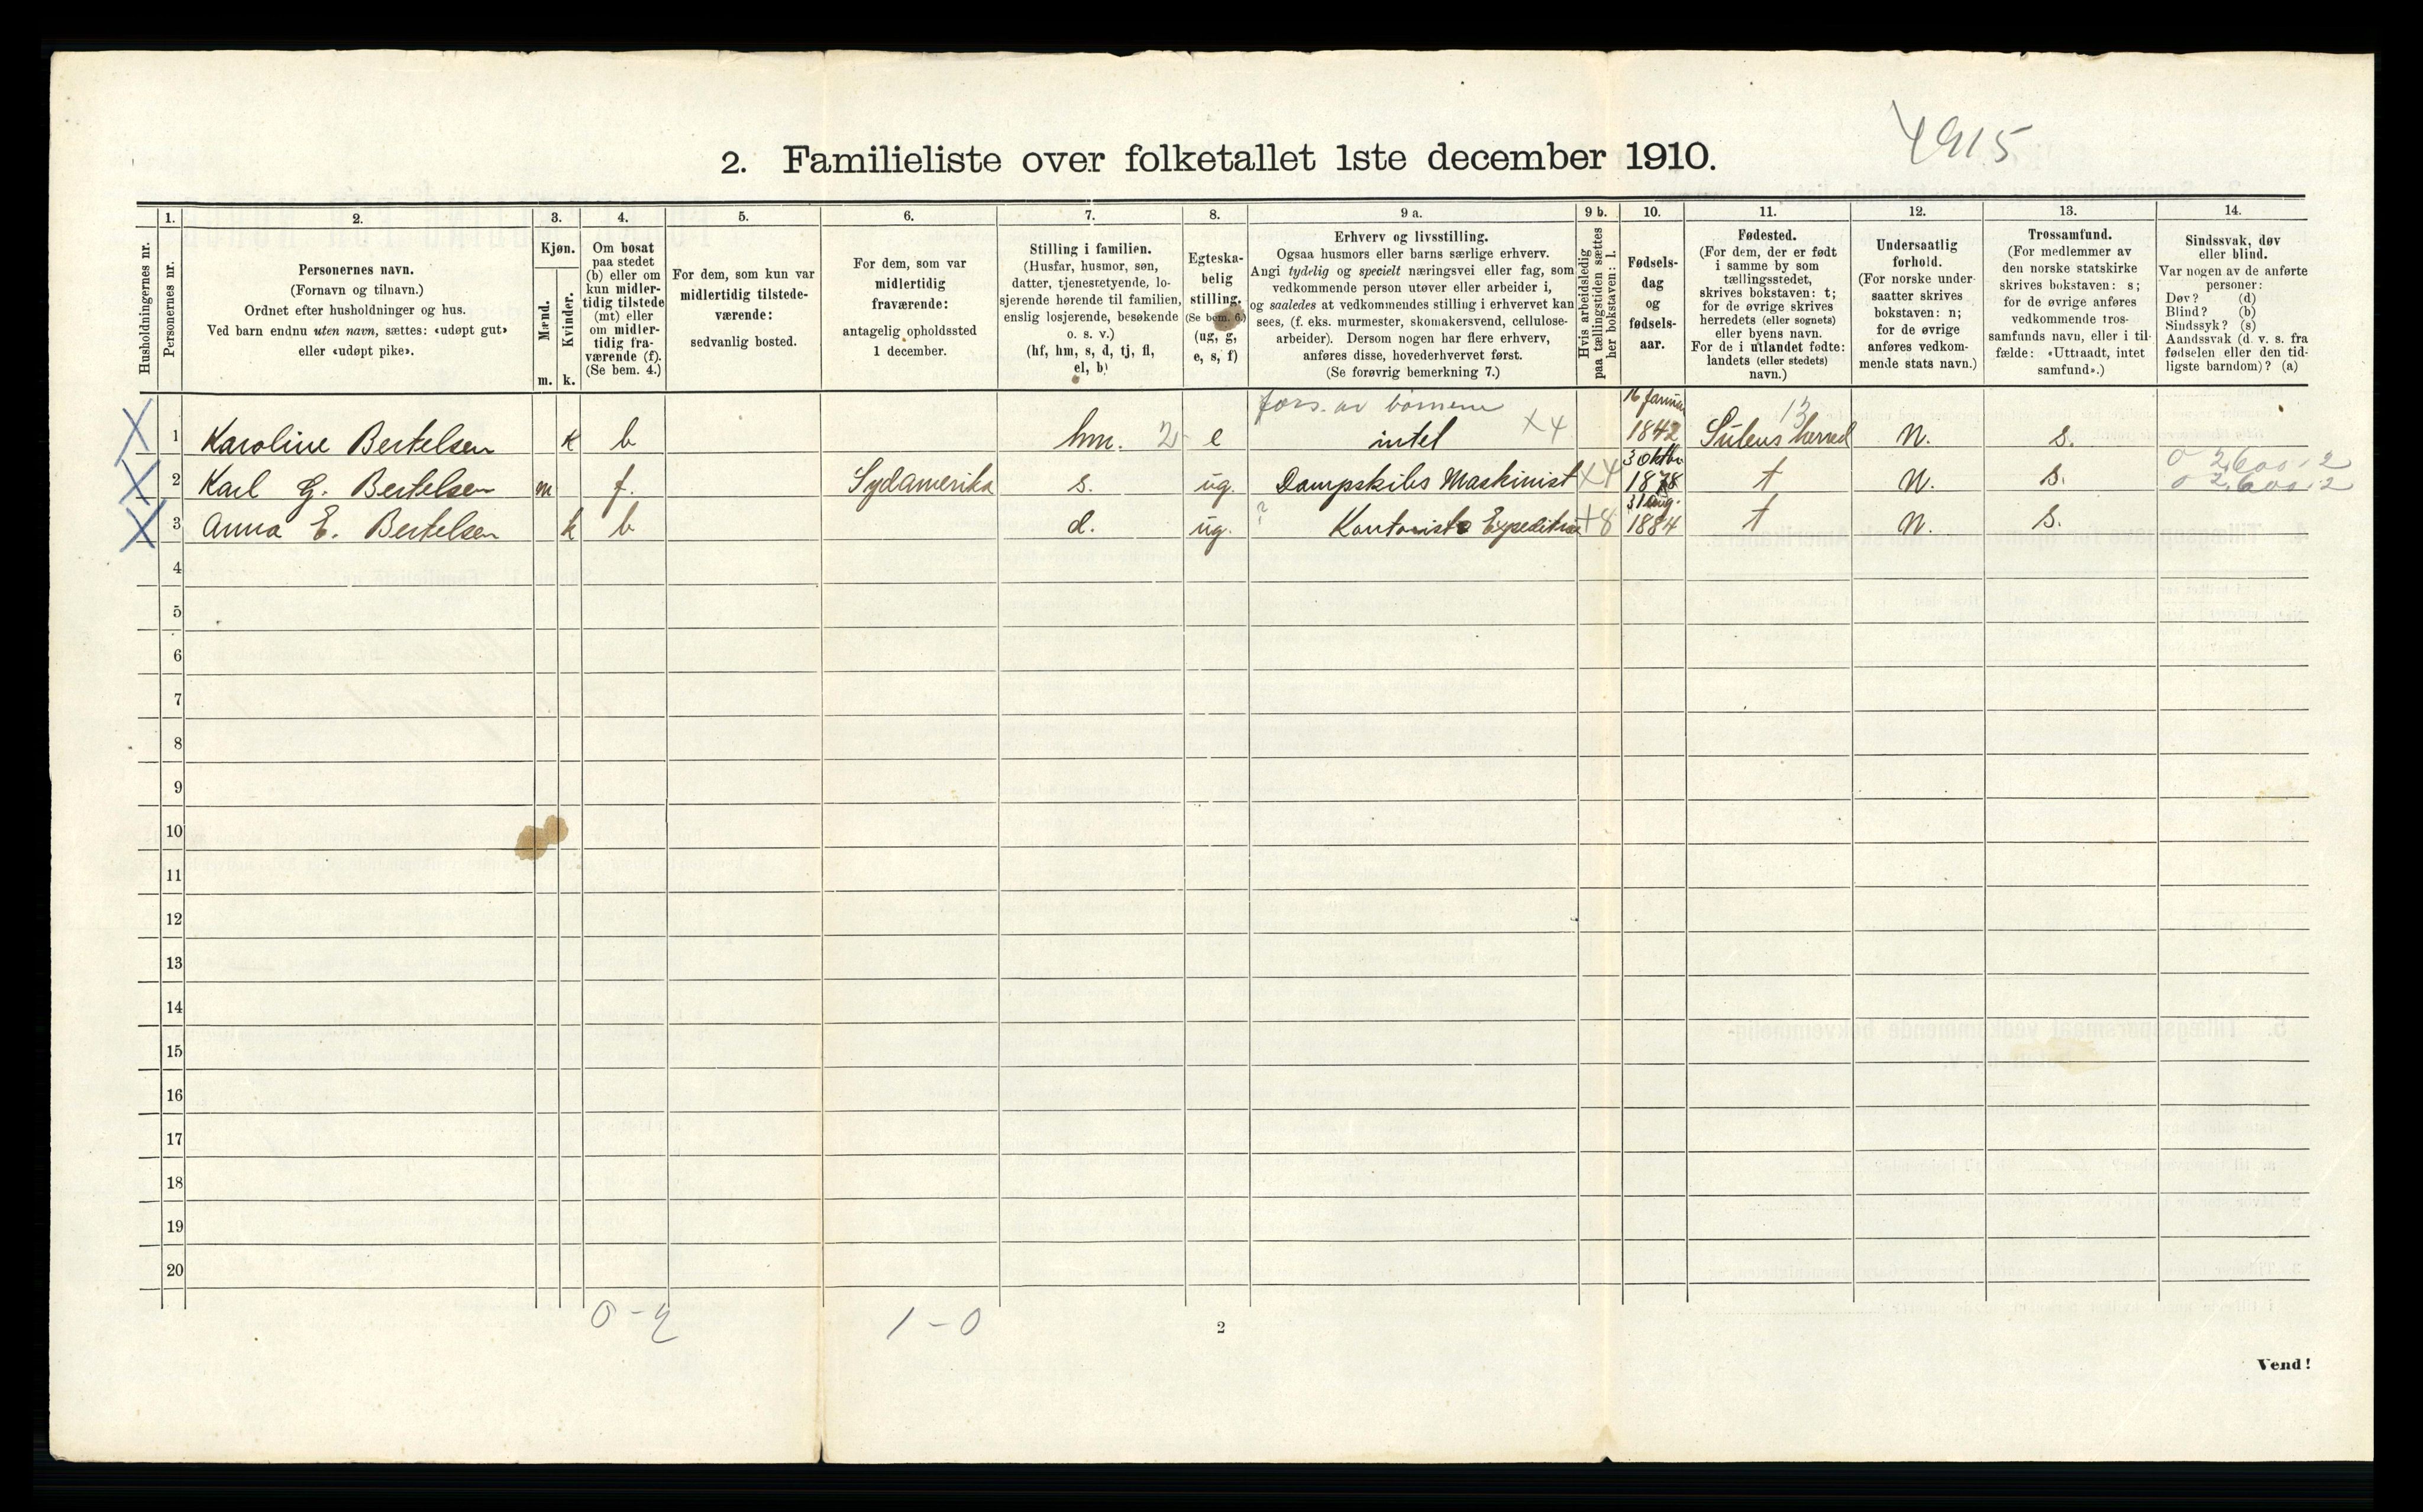 4915
2. Familieliste over folketallet 1ste december 1910.
Husholdningernes nr.
1.
Personernes nr.
2.
Personernes navn.
(Fornavn og tilnavn.)
Ordnet efter husholdninger og hus.
Ved barn endnu uten navn, sættes: «udøpt gut»
eller «udøpt pike».
3.
Kjøn.
Mænd.
Kvinder.
m. k.
4.
Om bosat
paa stedet
(b) eller om
kun midler-
tidig tilstede
(mt) eller
om midler-
tidig fra-
værende (f).
(Se bem. 4.)
5.
For dem, som kun var
midlertidig tilstede-
værende:
sedvanlig bosted.
6.
For dem, som var
midlertidig
fraværende:
antagelig opholdssted
1 december.
7.
Stilling i familien.
(Husfar, husmor, søn,
datter, tjenestetyende, lo-
sjerende hørende til familien,
enslig losjerende, besøkende
o. s. v.)
(hf, hm, s, d, tj, fl,
el, b)
8.
Egteska-
belig
stilling.
(Se bem. 6.)
(ug, g,
e, s, f)
9 a.
Erhverv og livsstilling.
Ogsaa husmors eller barns særlige erhverv.
Angi tydelig og specielt næringsvei eller fag, som
vedkommende person utøver eller arbeider i,
og saaledes at vedkommendes stilling i erhvervet kan
sees, (f. eks. murmester, skomakersvend, cellulose-
arbeider). Dersom nogen har flere erhverv,
anføres disse, hovederhvervet først.
(Se forøvrig bemerkning 7.)
9 b.
Hvis arbeidsledig
paa tællingstiden sættes
her bokstaven: l.
10.
Fødsels-
dag
og
fødsels-
aar.
11.
Fødested.
(For dem, der er født
i samme by som
tællingsstedet,
skrives bokstaven: t;
for de øvrige skrives
herredets (eller sognets)
eller byens navn.
For de i utlandet fødte:
landets (eller stedets)
navn.)
12.
Undersaatlig
forhold.
(For norske under-
saatter skrives
bokstaven: n;
for de øvrige
anføres vedkom-
mende stats navn.)
13.
Trossamfund.
(For medlemmer av
den norske statskirke
skrives bokstaven: s;
for de øvrige anføres
vedkommende tros-
samfunds navn, eller i til-
fælde: «Uttraadt, intet
samfund».)
14.
Sindssvak, døv
eller blind.
Var nogen av de anførte
personer:
Døv? (d)
Blind? (b)
Sindssyk? (s)
Aandssvak (d. v. s. fra
fødselen eller den tid-
ligste barndom)? (a)
fors. av børnene 16 januar 13
X 1 Karoline Bertelsen k b hm. 2 e intet X4 1842 herred N. s.
3 oktbr 0 2,600 - 2
X 2 Karl G. Bertelsen m f. Sydamerika s. ug. Dampskibs Maskinist X4 1878 t N. s. 0 2,600 - 2
31 aug.
X 3 Anna E. Bertelsen k b d. ug. ? Kontorist Expeditrice +8 1884 t N. s.
4
5
6
7
8
9
10
11
12
13
14
15
16
17
18
19
20
0 - 2 1 - 0
2
Vend!